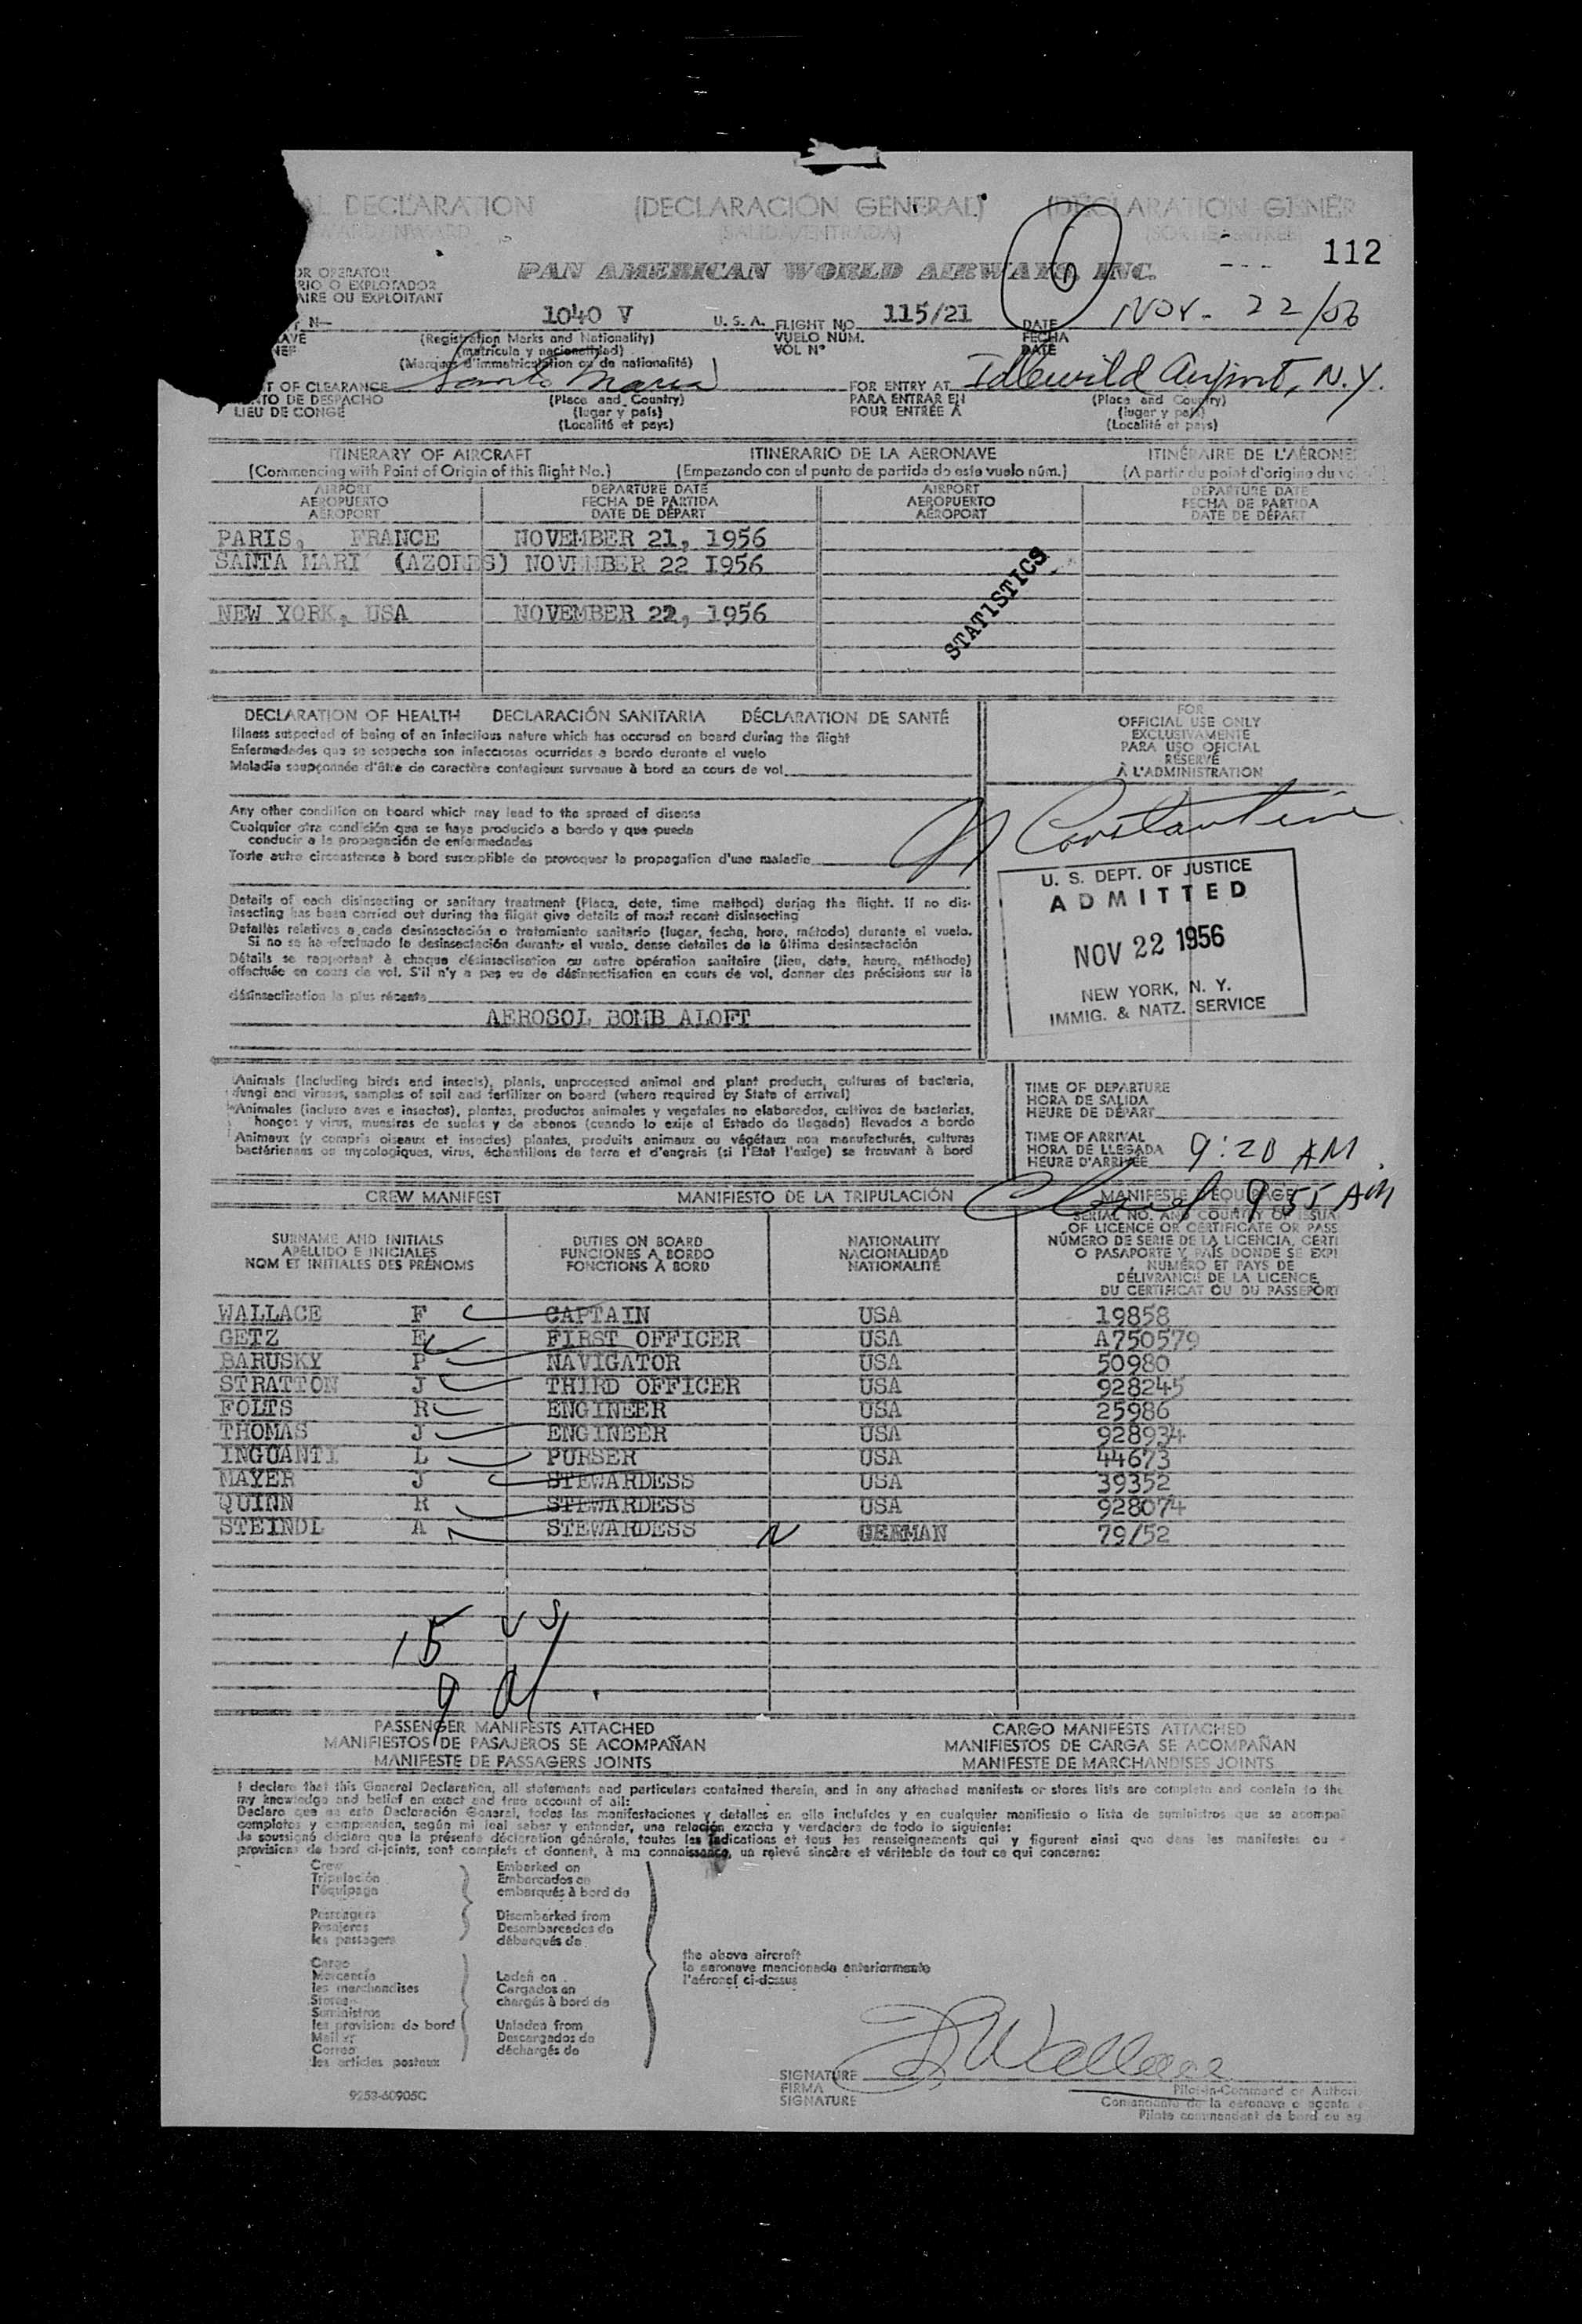 L DECLARATION (DECLARACIÓN GENERAL) (DÉCLARATION GÉNÉR
(SALIDA/ENTRADA)
112
OR OPERATOR
RIO O EXPLOTADOR
AIRE OU EXPLOITANT
PAN AMERICAN WORLD AIRWAYS, INC.
1040 V U. S. A. FLIGHT NO. 115/21 DATE Nov. 22/56
VUELO NÚM. FECHA
VOL N° DATE
(Registration Marks and Nationality)
(matrícula y nacionalidad)
(Marques d'immatriculation ou de nationalité)
T OF CLEARANCE Santa Maria FOR ENTRY AT Idlewild Airport, N.Y.
TO DE DESPACHO (Place and Country) PARA ENTRAR EN (Place and Country)
LIEU DE CONGÉ (lugar y país) POUR ENTRÉE À (lugar y país)
(Localité et pays) (Localité et pays)
ITINERARY OF AIRCRAFT ITINERARIO DE LA AERONAVE ITINÉRAIRE DE L'AÉRONE
(Commencing with Point of Origin of this flight No.) (Empezando con el punto de partida de este vuelo núm.) (A partir du point d'origine du vo
AIRPORT DEPARTURE DATE AIRPORT DEPARTURE DATE
AEROPUERTO FECHA DE PARTIDA AEROPUERTO FECHA DE PARTIDA
AÉROPORT DATE DE DÉPART AÉROPORT DATE DE DÉPART
PARIS, FRANCE NOVEMBER 21, 1956
SANTA MARI (AZORES) NOVEMBER 22 1956
NEW YORK, USA NOVEMBER 22, 1956
STATISTICS
DECLARATION OF HEALTH DECLARACIÓN SANITARIA DÉCLARATION DE SANTÉ
Illness suspected of being of an infectious nature which has occured on board during the flight
Enfermedades que se sospecha son infecciosas ocurridas a bordo durante el vuelo
Maladie soupçonnée d'être de caractère contagieux survenue à bord en cours de vol
FOR
OFFICIAL USE ONLY
EXCLUSIVAMENTE
PARA USO OFICIAL
RÉSERVÉ
À L'ADMINISTRATION
Any other condition on board which may lead to the spread of disease
Cualquier otra condición que se haya producido a bordo y que pueda
conducir a la propagación de enfermedades
Toute autre circonstance à bord susceptible de provoquer la propagation d'une maladie
Constantine
Details of each disinsecting or sanitary treatment (Place, date, time method) during the flight. If no dis-
insecting has been carried out during the flight give details of most recent disinsecting
Detalles relativos a cada desinsectación o tratamiento sanitario (lugar, fecha, hora, método) durante el vuelo.
Si no se ha efectuado la desinsectación durante el vuelo, dense detalles de la última desinsectación
Détails se rapportent à chaque désinsectisation ou autre opération sanitaire (lieu, date, heure, méthode)
effectuée en cours de vol. S'il n'y a pas eu de désinsectisation en cours de vol, donner des précisions sur la
désinsectisation la plus récente
AEROSOL BOMB ALOFT
U. S. DEPT. OF JUSTICE
ADMITTED
NOV 22 1956
NEW YORK, N. Y.
IMMIG. & NATZ. SERVICE
Animals (Including birds and insects), plants, unprocessed animal and plant products, cultures of bacteria,
fungi and viruses, samples of soil and fertilizer on board (where required by State of arrival)
Animales (incluso aves e insectos), plantas, productos animales y vegetales no elaborados, cultivos de bacterias,
hongos y virus, muestras de suelos y de abonos (cuando lo exija el Estado de llegada) llevados a bordo
Animaux (y compris oiseaux et insectes) plantes, produits animaux ou végétaux non manufacturés, cultures
bactériennes ou mycologiques, virus, échantillons de terre et d'engrais (si l'État l'exige) se trouvant à bord
TIME OF DEPARTURE
HORA DE SALIDA
HEURE DE DÉPART
TIME OF ARRIVAL
HORA DE LLEGADA 9:20 AM
HEURE D'ARRIVÉE
CREW MANIFEST MANIFIESTO DE LA TRIPULACIÓN MANIFESTE D'EQUIPAGE
9 55 AM
SURNAME AND INITIALS
APELLIDO E INICIALES
NOM ET INITIALES DES PRÉNOMS
DUTIES ON BOARD
FUNCIONES A BORDO
FONCTIONS À BORD
NATIONALITY
NACIONALIDAD
NATIONALITÉ
SERIAL NO. AND COUNTRY OF ISSUA
OF LICENCE OR CERTIFICATE OR PASS
NÚMERO DE SERIE DE LA LICENCIA, CERTI
O PASAPORTE Y PAÍS DONDE SE EXPI
NUMÉRO ET PAYS DE
DÉLIVRANCE DE LA LICENCE,
DU CERTIFICAT OU DU PASSEPORT
WALLACE F CAPTAIN USA 19858
GETZ E FIRST OFFICER USA A750579
BARUSKY P NAVIGATOR USA 50980
STRATTON J THIRD OFFICER USA 928245
FOLTS R ENGINEER USA 25986
THOMAS J ENGINEER USA 928934
INGUANTI L PURSER USA 44673
MAYER J STEWARDESS USA 39352
QUINN R STEWARDESS USA 928074
STEINDL A STEWARDESS GERMAN 79/52
15 US
9 al
PASSENGER MANIFESTS ATTACHED CARGO MANIFESTS ATTACHED
MANIFIESTOS DE PASAJEROS SE ACOMPAÑAN MANIFIESTOS DE CARGA SE ACOMPAÑAN
MANIFESTE DE PASSAGERS JOINTS MANIFESTE DE MARCHANDISES JOINTS
I declare that this General Declaration, all statements and particulars contained therein, and in any attached manifests or stores lists are complete and contain to the
my knowledge and belief an exact and true account of all:
Declaro que en esta Declaración General, todas las manifestaciones y detalles en ella incluídos y en cualquier manifiesto o lista de suministros que se acompa
completos y comprenden, según mi leal saber y entender, una relación exacta y verdadera de todo lo siguiente:
Je soussigné déclare que la présente déclaration générale, toutes les indications et tous les renseignements qui y figurent ainsi que dans les manifestes ou
provisions de bord ci-joints, sont complets et donnent, à ma connaissance, un relevé sincère et véritable de tout ce qui concerne:
Crew Embarked on
Tripulación Embarcados en
l'équipage embarqués à bord de
Passengers Disembarked from
Pasajeros Desembarcados de
les passagers débarqués de
the above aircraft
la aeronave mencionada anteriormente
l'aéronef ci-dessus
Cargo
Mercancía Laden on
les marchandises Cargados en
Stores chargés à bord de
Suministros
les provisions de bord Unladen from
Mail Descargados de
Correo déchargés de
les articles postaux
F Wallace
SIGNATURE
FIRMA
SIGNATURE
Pilot-in-Command or Authori
Comandante de la aeronave o agente
Pilote commandant de bord ou ag
9253-60905C